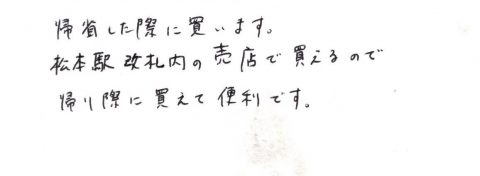 帰省した際に買います。
松本駅改札内の売店で買えるので
帰り際に買えて便利です。